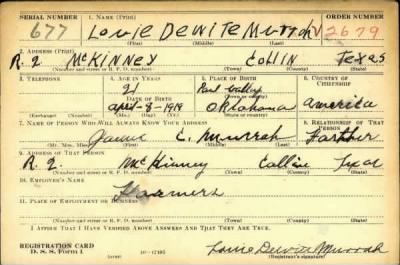 SERIAL NUMBER 1. NAME (Print) ORDER NUMBER
677 Louie Dewite Murrah V2679
(First) (Middle) (Last)
2. ADDRESS (Print)
R.2 McKINNEY Collin Texas
(Number and street or R. F. D. number) (Town) (County) (State)
3. TELEPHONE 4. AGE IN YEARS 5. PLACE OF BIRTH 6. COUNTRY OF CITIZENSHIP
21 Paul Valley
DATE OF BIRTH (Town or county)
April-8-1919 Oklahoma America
(Exchange) (Number) (Mo.) (Day) (Yr.) (State or country)
7. NAME OF PERSON WHO WILL ALWAYS KNOW YOUR ADDRESS 8. RELATIONSHIP OF THAT PERSON
C. Murrah Farther
(Mr., Mrs., Miss) (First) (Middle) (Last)
9. ADDRESS OF THAT PERSON
R.2. McKinney Collin Texas
(Number and street or R. F. D. number) (Town) (County) (State)
10. EMPLOYER'S NAME
11. PLACE OF EMPLOYMENT OR BUSINESS
(Number and street or R. F. D. number) (Town) (County) (State)
I AFFIRM THAT I HAVE VERIFIED ABOVE ANSWERS AND THAT THEY ARE TRUE.
REGISTRATION CARD
D. S. S. Form 1 Louie Dewite Murrah
(Registrant's signature)